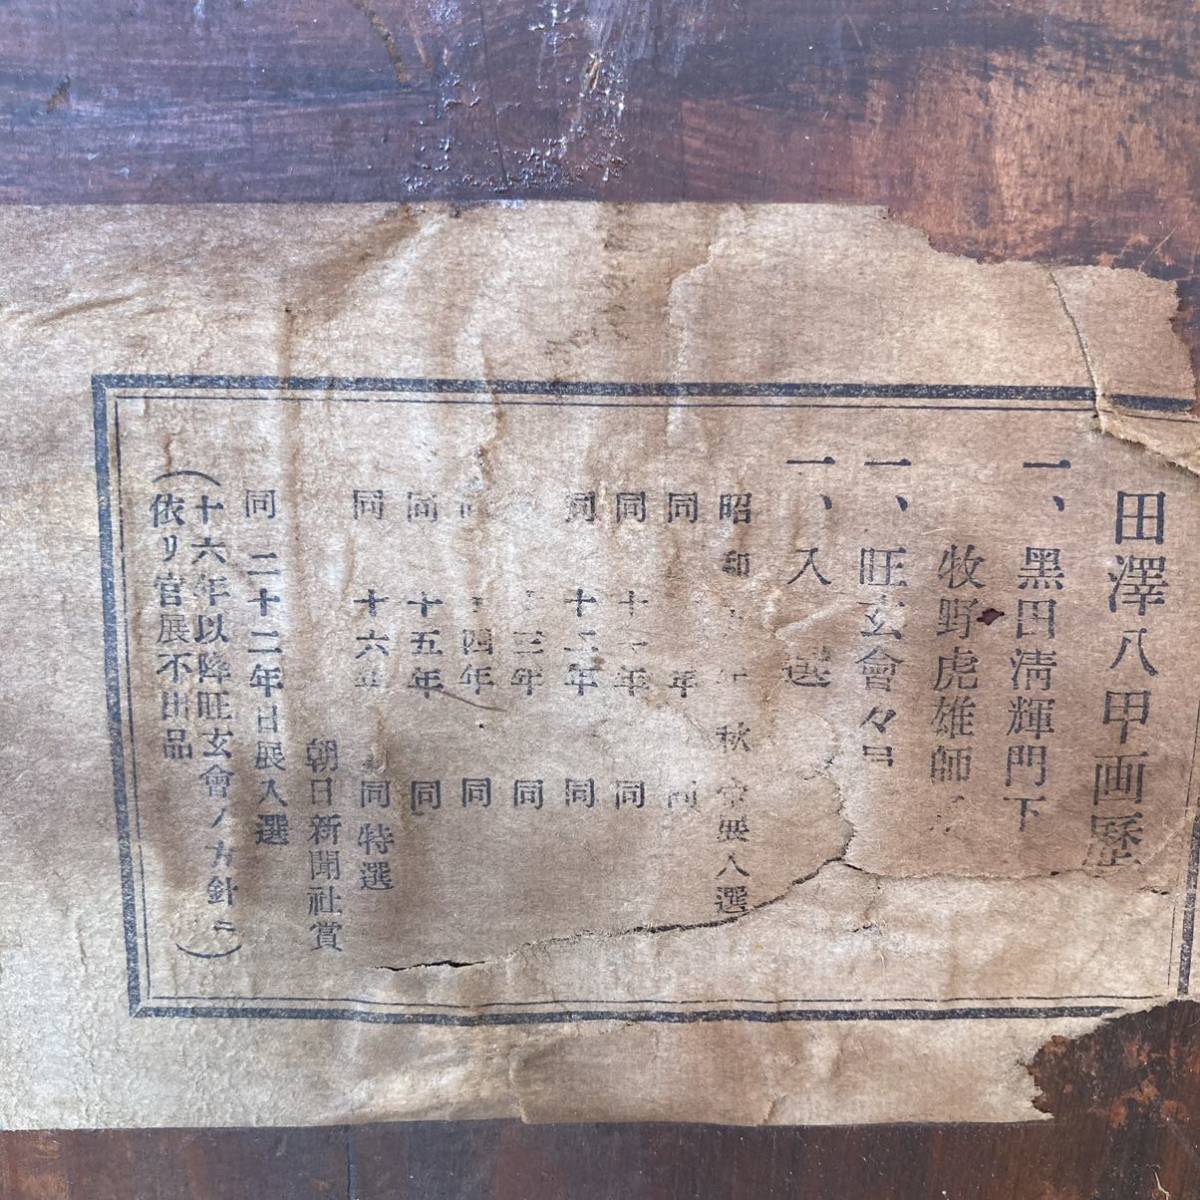 田澤八甲画歷
一、黑田淸輝門下
牧野虎雄師
一、旺玄會々員
一、入選
昭和 年 秋 入選
同 年 同
同 十一年 同
同 十二年 同
三年 同
四年 同
同 十五年 同
同 十六年 同 特選
朝日新聞社賞
同 二十二年日展入選
(十六年以降旺玄會ノ方針ニ
依リ官展不出品)